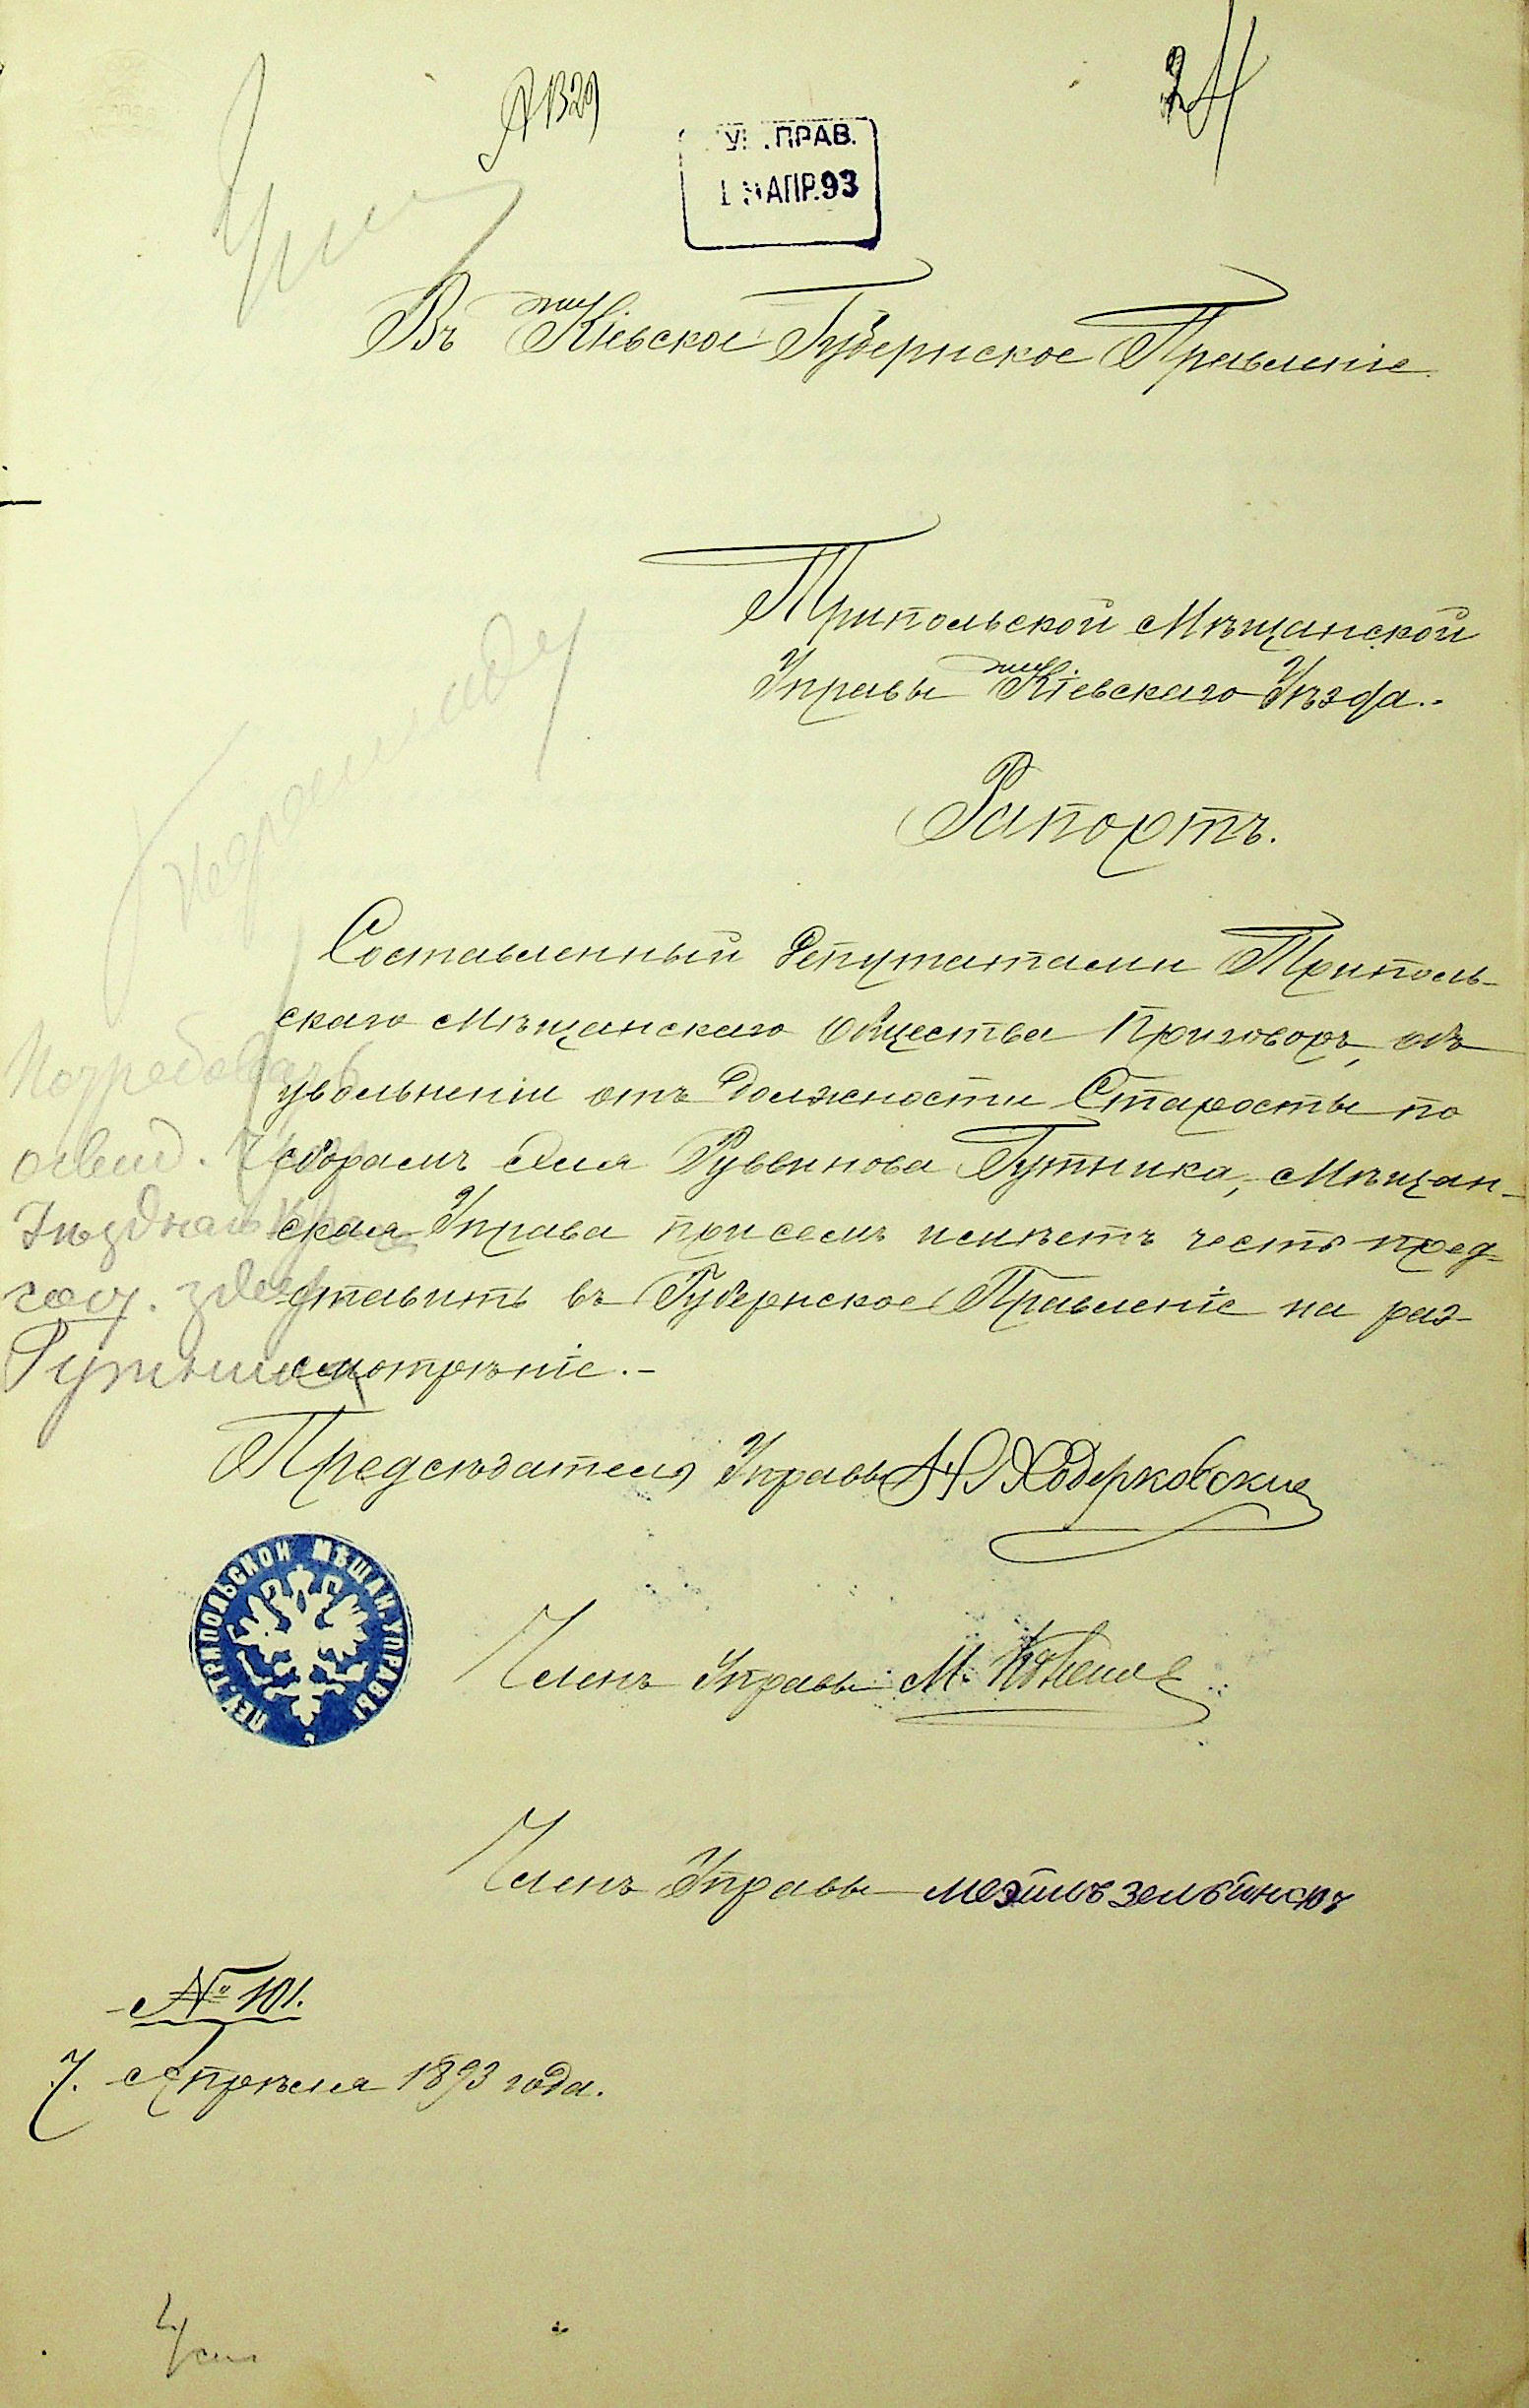 24
ГУБ.ПРАВ.
АПР.93
Въ Кіевское Губернское Правленіе.
Трипольской Мѣщанской
Управы Кіевскаго Уѣзда.
Рапортъ.
Составленный депутатами Триполь-
скаго Мѣщанскаго Общества Приговоръ, объ
увольненіи отъ должности Старосты по
сборамъ Эля Рувинова Гутника, Мѣщан-
ская Управа при семъ имѣетъ честь пред-
ставить въ Губернское Правленіе на раз-
смотрѣніе.-
Потребовать
Гутника
Предсѣдатель Управы Ходорковскій
ПЕЧ. ТРИПОЛЬСКОЙ МѢЩАН. УПРАВЫ
Членъ Управы М.
Членъ Управы
№ 101.
7. Апрѣля 1893 года.